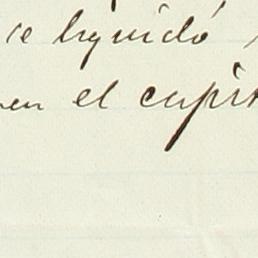 se liquidó
en el capit